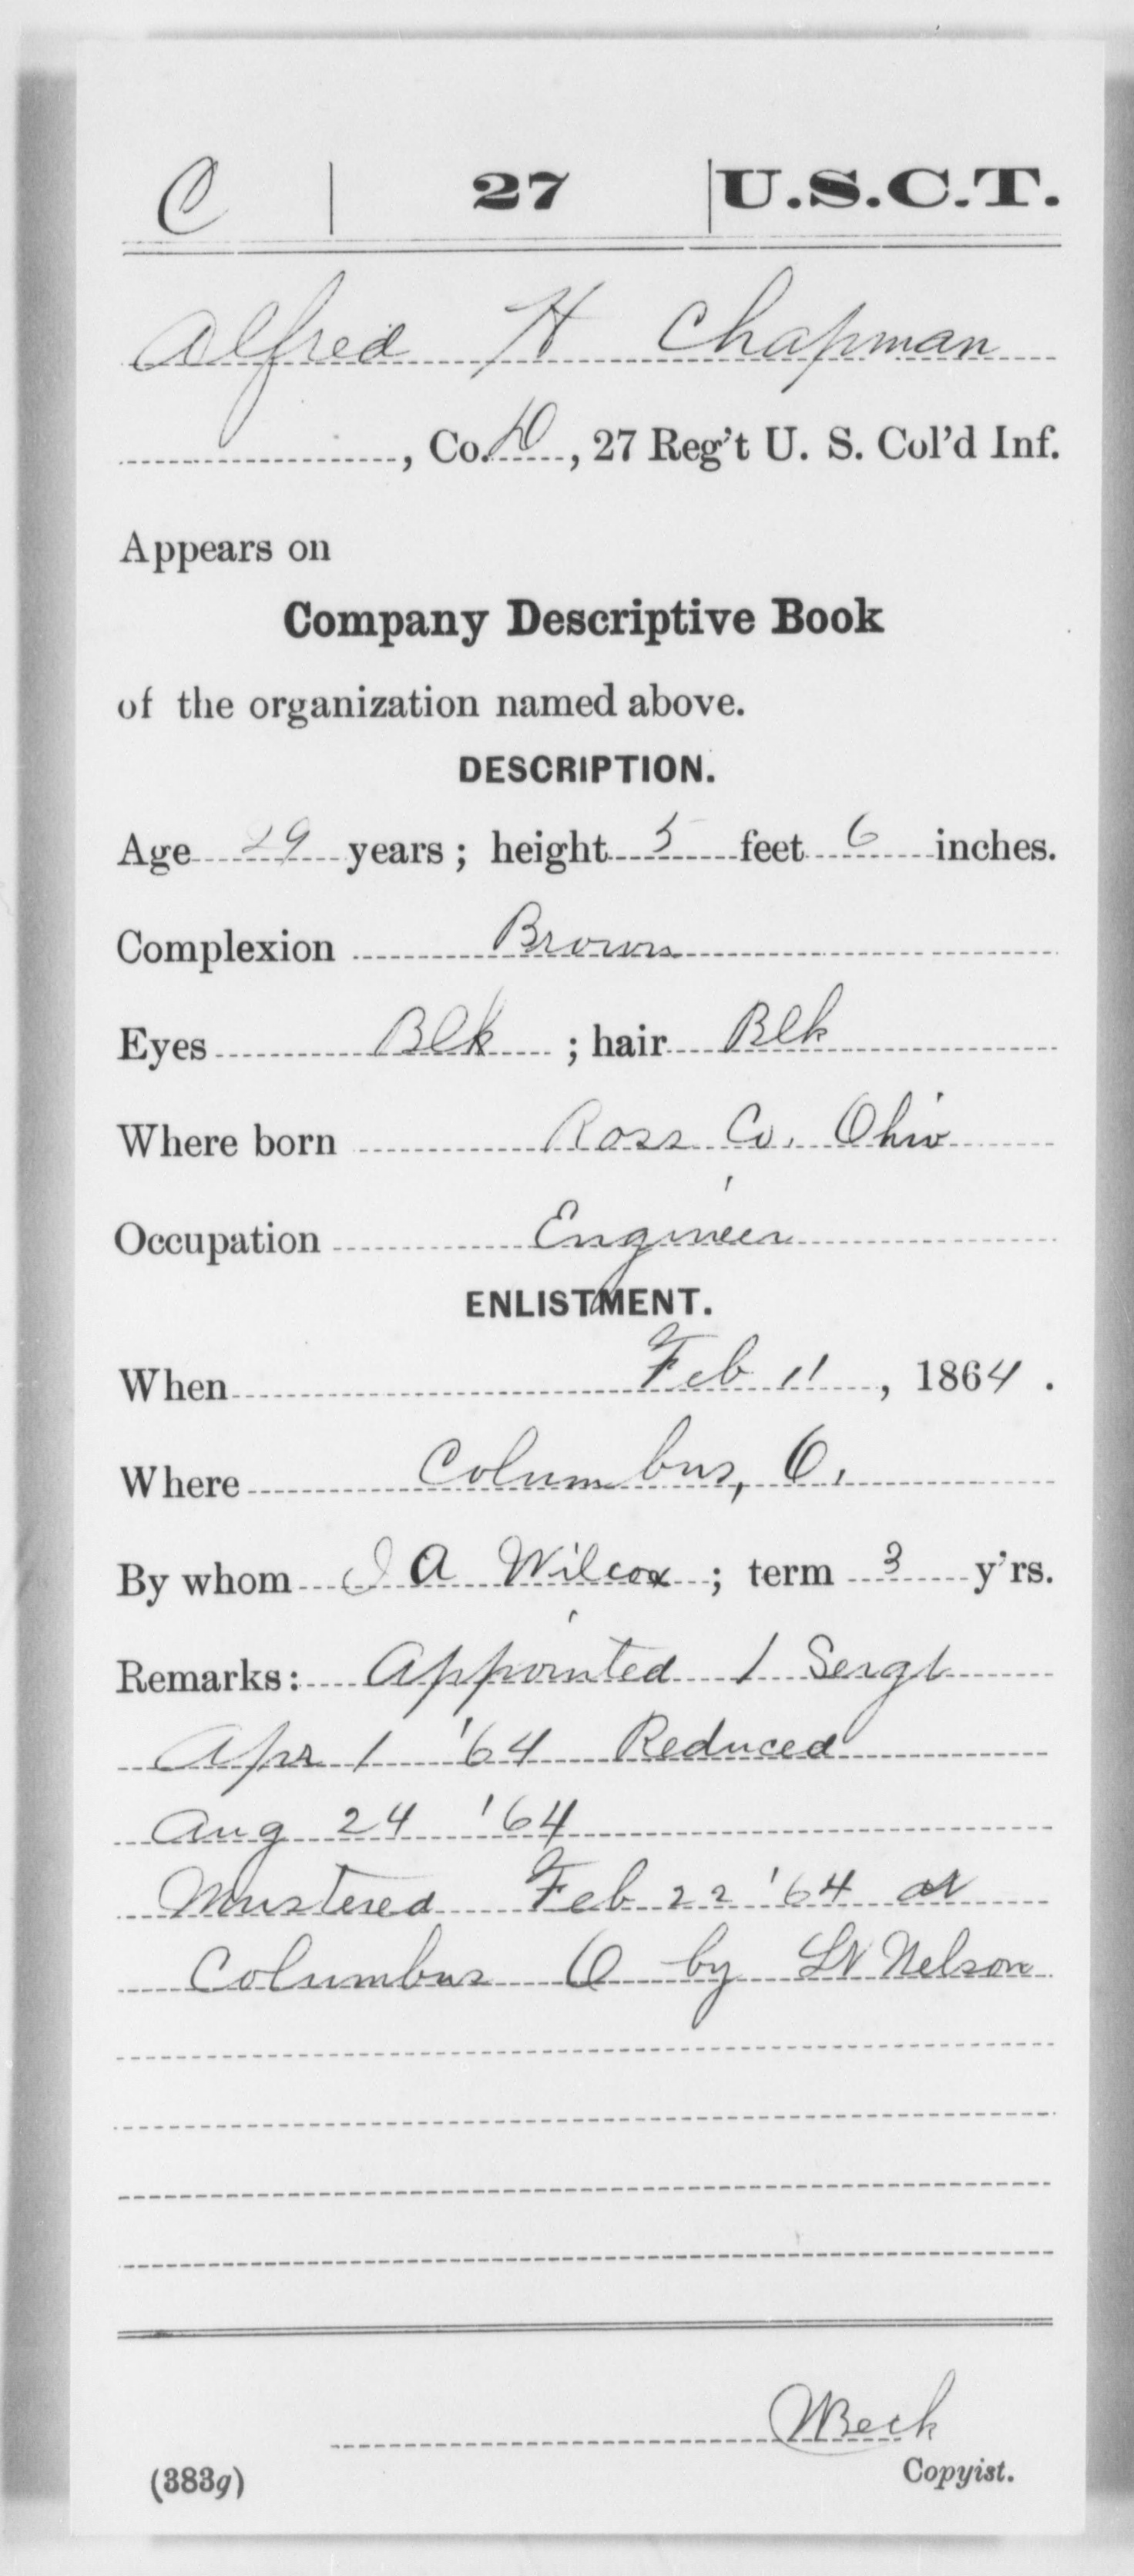 C | 27 | U.S.C.T.
Alfred H Chapman
, Co. D, 27 Reg't U. S. Col'd Inf.
Appears on
Company Descriptive Book
of the organization named above.
DESCRIPTION.
Age 29 years; height 5 feet 6 inches.
Complexion Brown
Eyes Blk; hair Blk
Where born Ross Co. Ohio
Occupation Engineer
ENLISTMENT.
When Feb 11, 1864.
Where Columbus, O.
By whom J A Wilcox; term 3 y'rs.
Remarks: Appointed 1 Sergt
Apr 1 '64 Reduced
Aug 24 '64
Mustered Feb 22 '64 at
Columbus O by Lt Nelson
Beck
(383g)
Copyist.